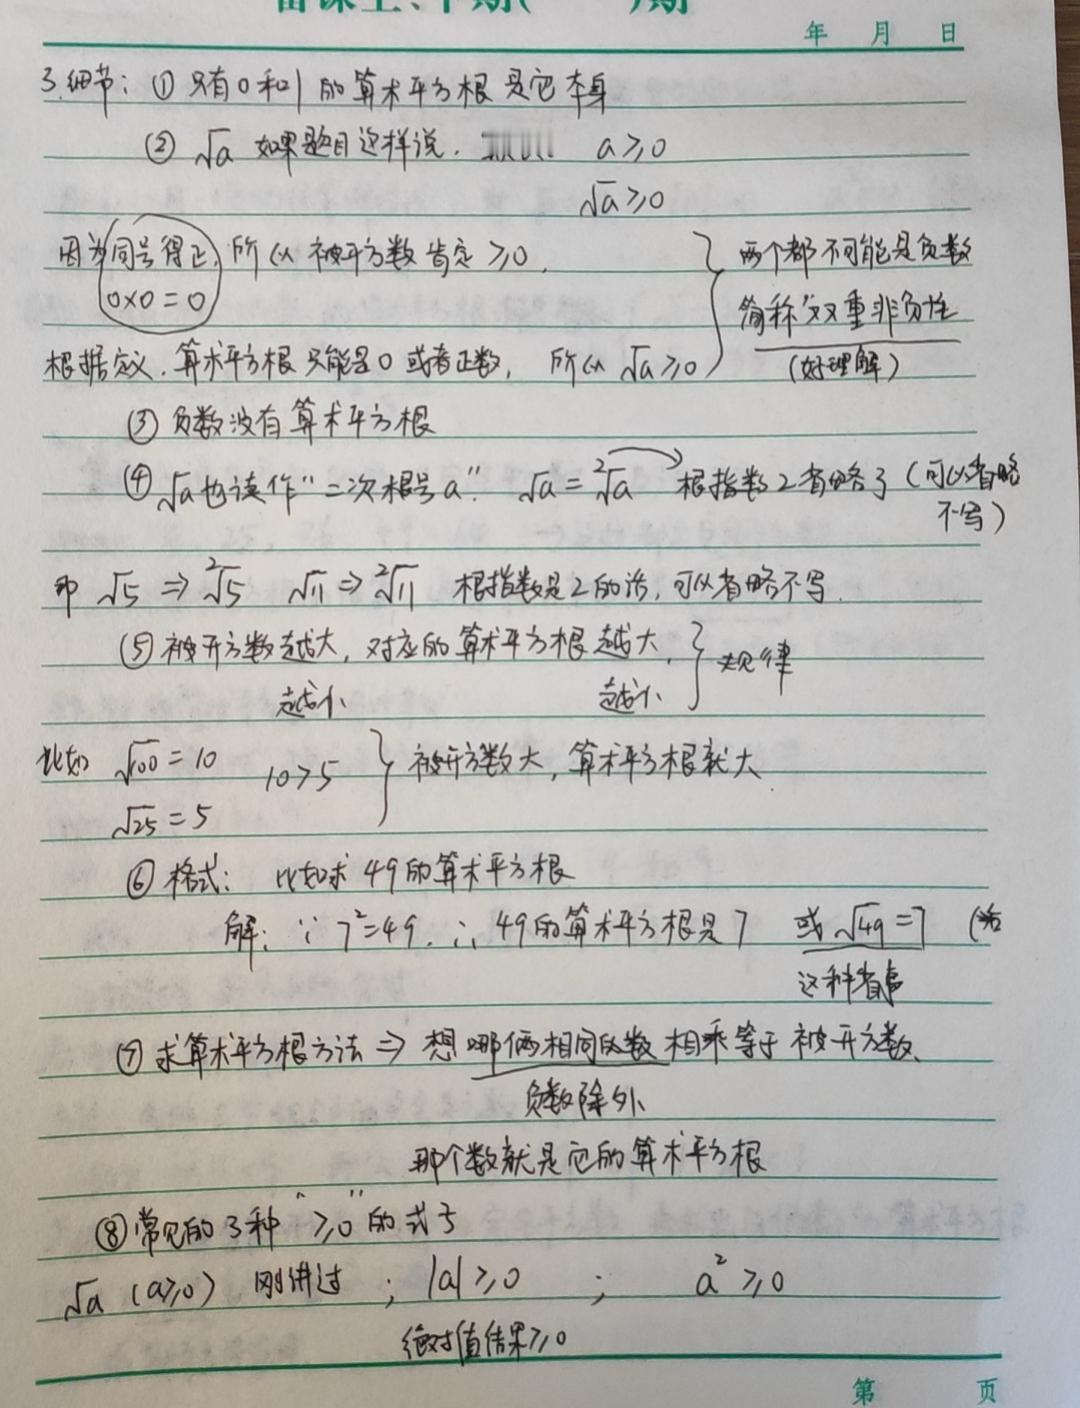 年 月 日
3.细节：① 只有0和1的算术平方根是它本身
② √a 如果题目这样说． a≥0
√a≥0
因为同号得正，所以被开方数肯定≥0．
0×0=0
两个都不可能是负数
简称“双重非负性
根据定义．算术平方根只能是0或者正数， 所以√a≥0
（好理解）
③ 负数没有算术平方根
④ √a也读作“二次根号a”． √a=²√a 根指数2省略了（可以省略
不写）
即 √5⇒²√5 √11⇒²√11 根指数是2的话，可以省略不写．
⑤ 被开方数越大，对应的算术平方根越大． 规律
越小 越小
比如 √100=10 10>5 被开方数大，算术平方根就大
√25=5
⑥ 格式： 比如求49的算术平方根
解：∵7²=49．∴49的算术平方根是7 或√49=7
这种省事
⑦ 求算术平方根方法⇒想哪俩相同的数相乘等于被开方数、
负数除外
那个数就是它的算术平方根
⑧ 常见的3种“≥0”的式子
√a（a≥0）刚讲过 ； |a|≥0 ； a²≥0
绝对值结果≥0
第 页